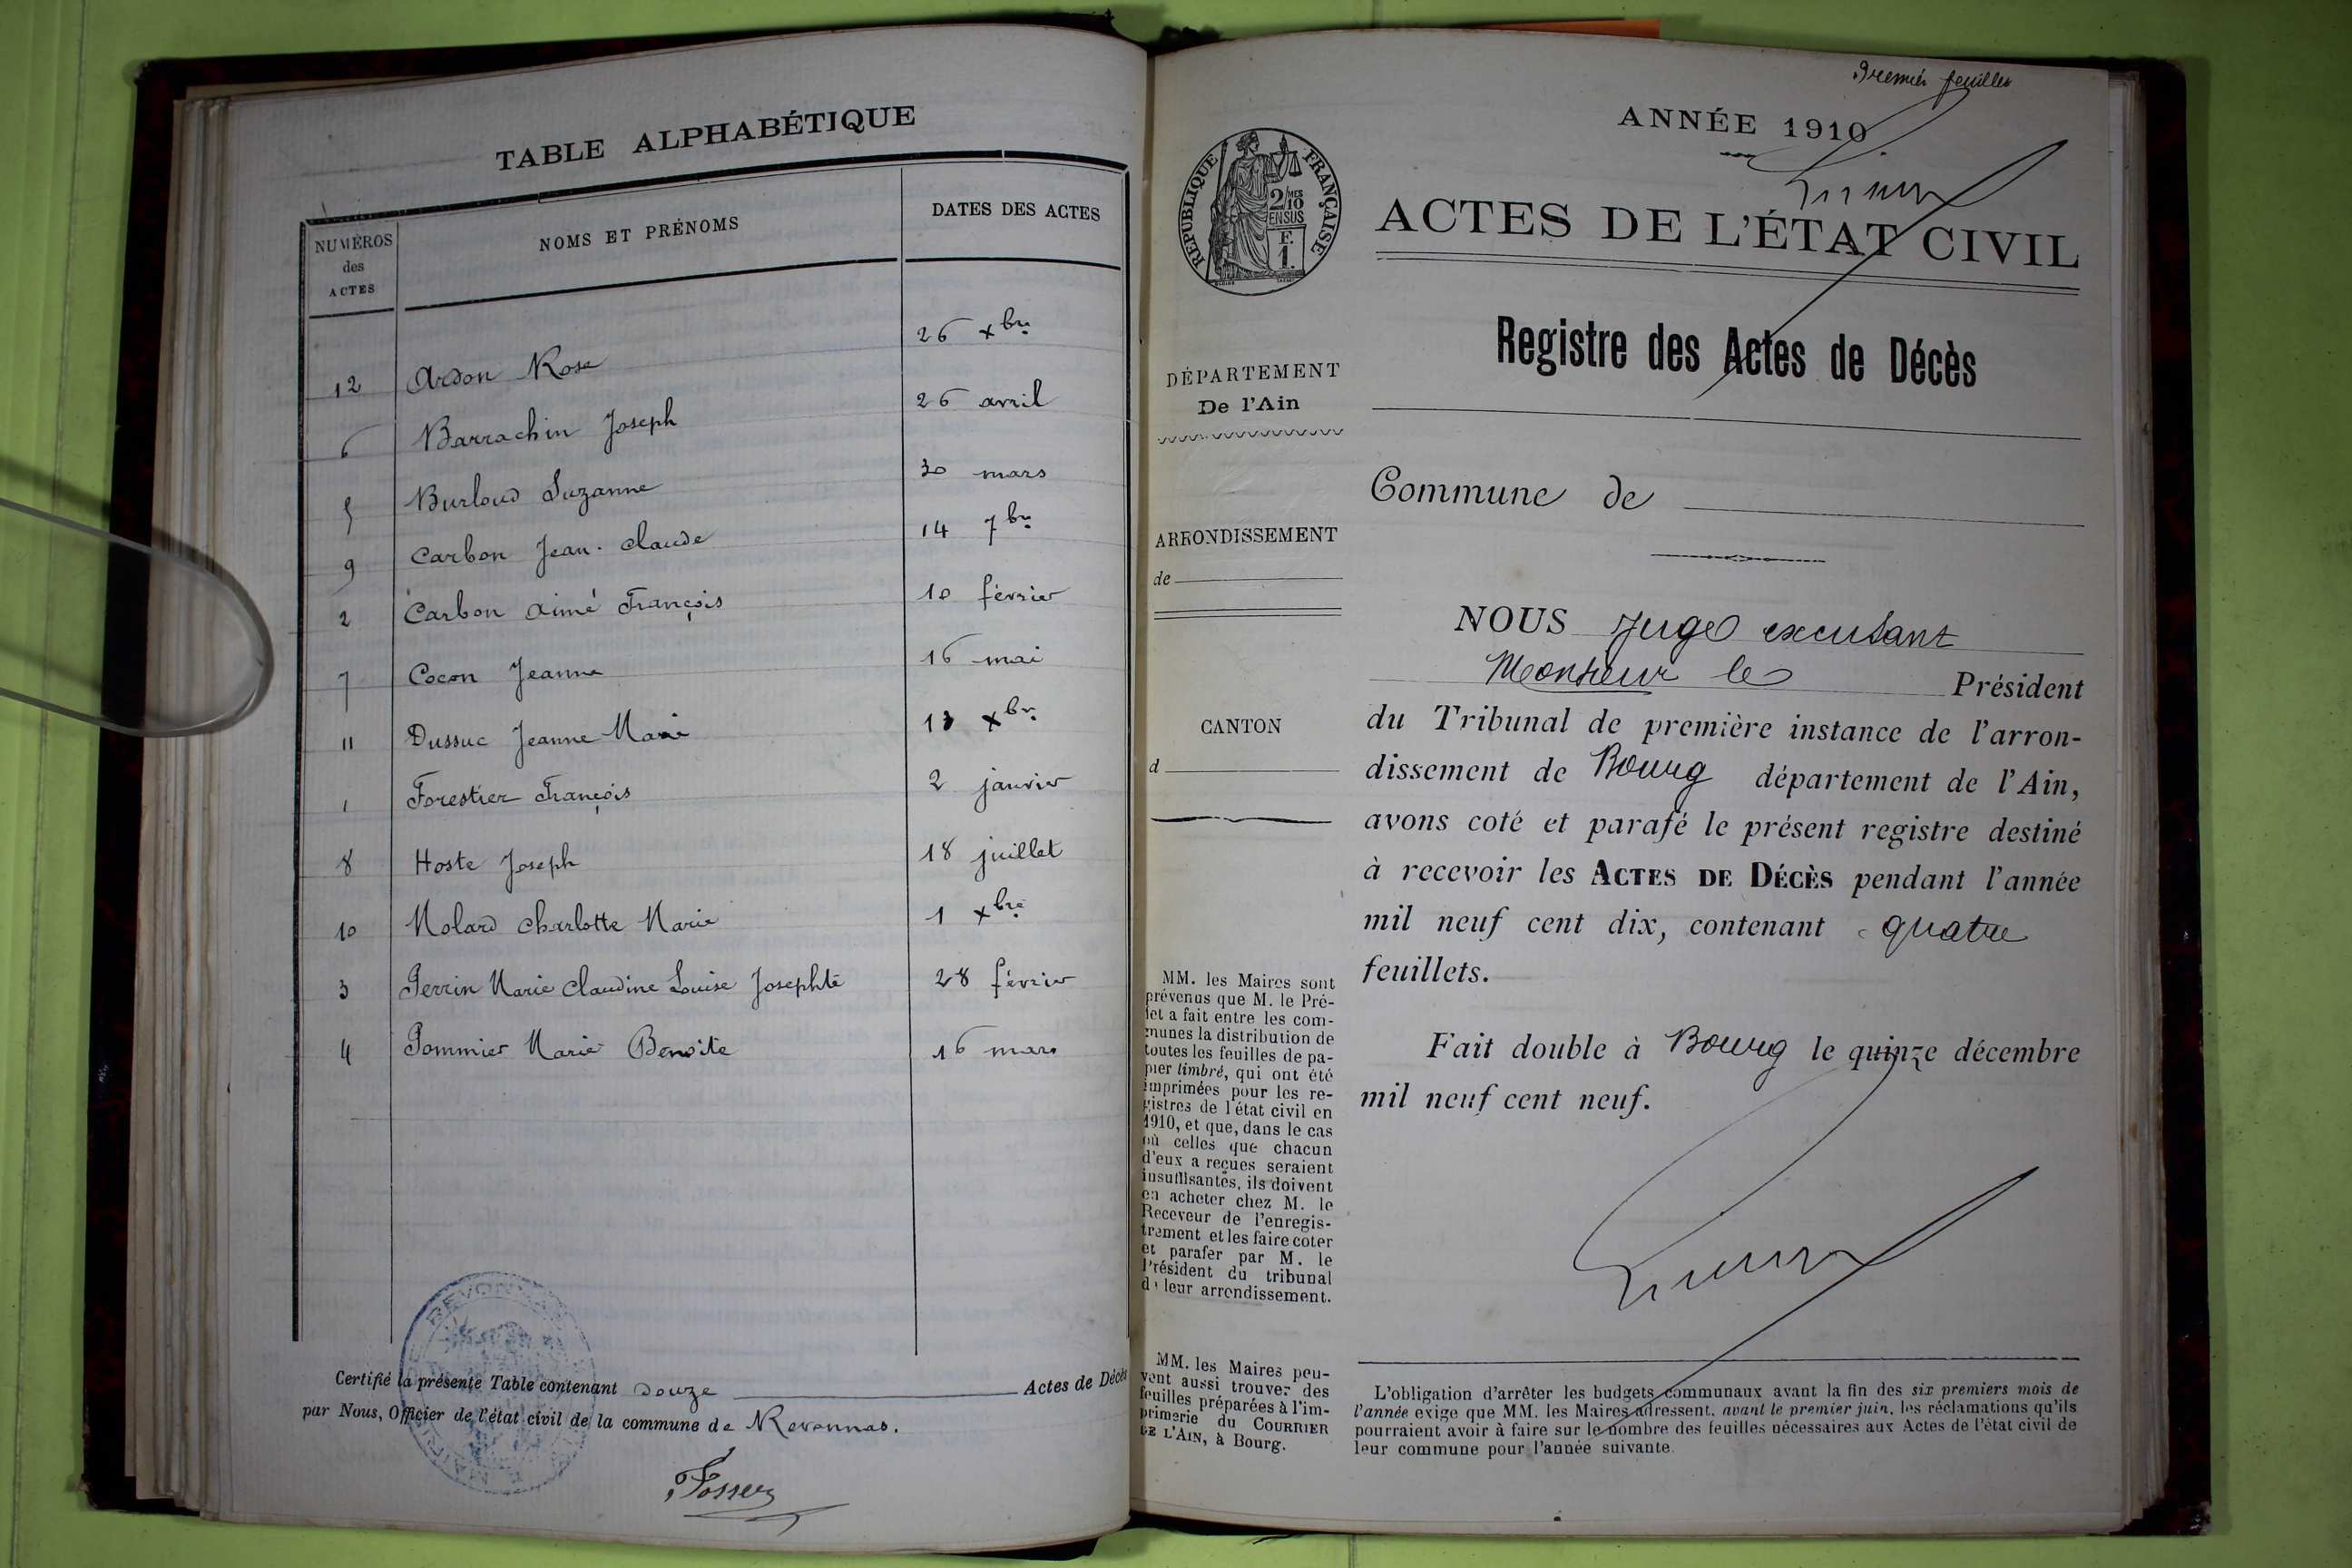 TABLE ALPHABÉTIQUE
NUMÉROS
des
ACTES
NOMS ET PRÉNOMS
DATES DES ACTES
12 Ardon Rose 26 xbre
6 Barrachin Joseph 26 avril
5 Burloud Suzanne 30 mars
9 Carbon Jean-Claude 14 7bre
2 Carbon Aimé François 10 février
7 Cocon Jeanne 16 mai
11 Dussuc Jeanne Marie 13 xbre
1 Forestier François 2 janvier
8 Hoste Joseph 18 juillet
10 Molard Charlotte Marie 1 xbre
3 Perrin Marie Claudine Louise Josephte 28 février
4 Pommier Marie Benoite 16 mars
Certifié la présente Table contenant douze Actes de Décès
par Nous, Officier de l'état civil de la commune de Revonnas.
Premier feuillet
ANNÉE 1910
ACTES DE L'ÉTAT CIVIL
RÉPUBLIQUE FRANÇAISE
2/10 MES
EN SUS
F.
1.
Registre des Actes de Décès
DÉPARTEMENT
De l'Ain
Commune de
ARRONDISSEMENT
de
CANTON
d
NOUS Juge excusant
Monsieur le Président
du Tribunal de première instance de l'arron-
dissement de Bourg département de l'Ain,
avons coté et parafé le présent registre destiné
à recevoir les ACTES DE DÉCÈS pendant l'année
mil neuf cent dix, contenant quatre
feuillets.
Fait double à Bourg le quinze décembre
mil neuf cent neuf.
MM. les Maires sont
prévenus que M. le Pré-
fet a fait entre les com-
munes la distribution de
toutes les feuilles de pa-
pier timbré, qui ont été
imprimées pour les re-
gistres de l'état civil en
1910, et que, dans le cas
où celles que chacun
d'eux a reçues seraient
insuffisantes, ils doivent
en acheter chez M. le
Receveur de l'enregis-
trement et les faire coter
et parafer par M. le
Président du tribunal
de leur arrondissement.
MM. les Maires peu-
vent aussi trouver des
feuilles préparées à l'im-
primerie du COURRIER
DE L'AIN, à Bourg.
L'obligation d'arrêter les budgets communaux avant la fin des six premiers mois de
l'année exige que MM. les Maires adressent, avant le premier juin, les réclamations qu'ils
pourraient avoir à faire sur le nombre des feuilles nécessaires aux Actes de l'état civil de
leur commune pour l'année suivante.